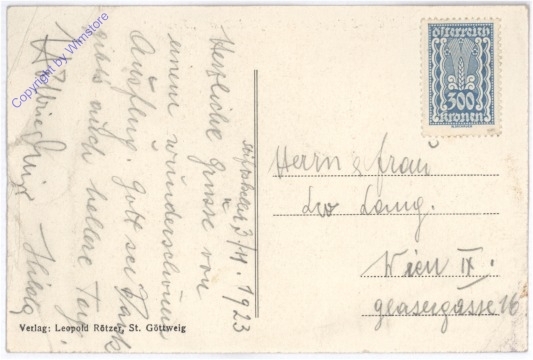 3/4. 1923
Herzliche Grüsse von
einem wunderschönen
Ausflug. Gott sei Dank
gibts auch hellere Tage
Copyright by Wimstore
Verlag: Leopold Rötzer, St. Göttweig
österreich
300
kronen
Herrn & Frau
Leo Lang.
Wien IX.
glasergasse 16